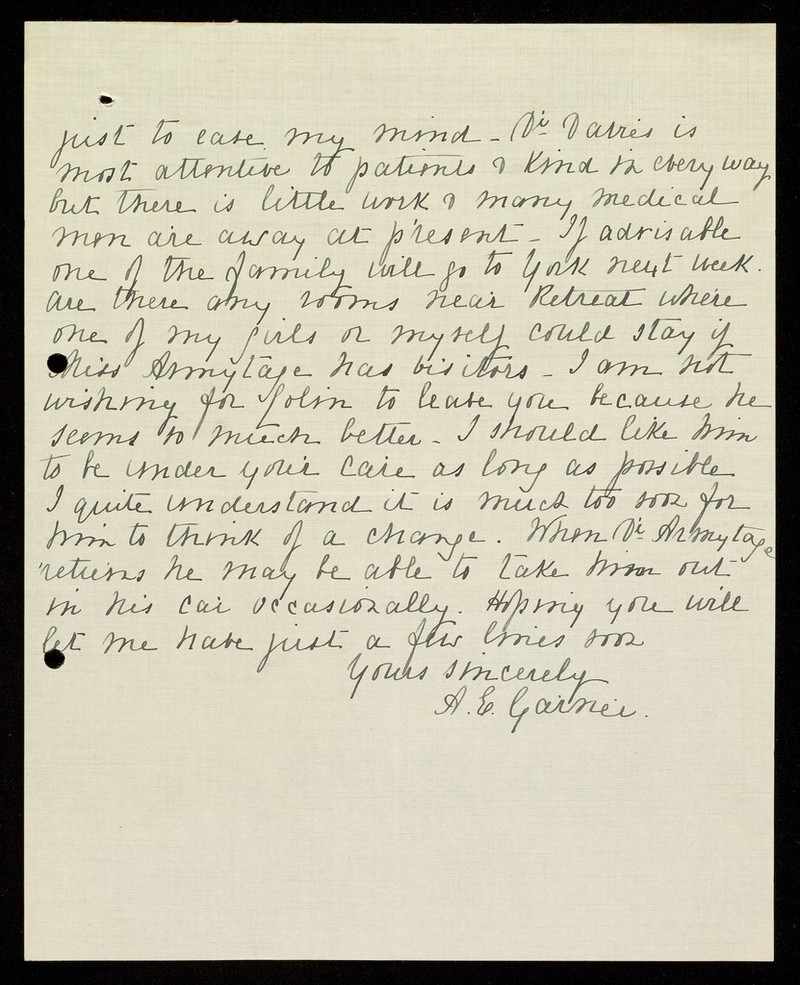 just to ease my mind - Dr Davies is
most attentive to patients & kind in every way
but there is little work & many medical
men are away at present - If advisable
one of the family will go to York next week.
are there any rooms near Retreat where
one of my girls or myself could stay if
Miss Armytage has visitors - I am not
wishing for Colin to leave you because he
seems so much better - I should like him
to be under your care as long as possible
I quite understand it is much too soon for
him to think of a change. When Dr Armytage
returns he may be able to take him out
in his car occasionally. Hoping you will
let me have just a few lines soon
Yours sincerely
A. E. Garner.